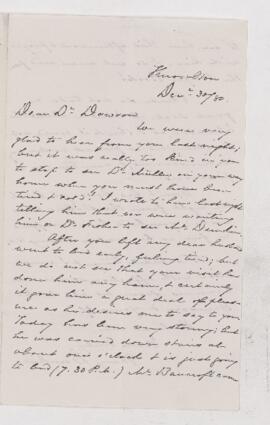 Dec. 30/80.
Dear Dr. Dawson
We were very
glad to hear from you last night;
but it was really too kind in you
to stop to see Dr. Müller on your way
home when you must have been
tired & cold! I wrote to him last night
telling him that we were wanting
him or Dr. to see Mr.
After you left my dear husband
went to bed early, feeling tired; but
we do not see that your visit has
done him any harm, & certainly
it gave him a great deal of pleas-
ure as he desires me to say to you
Today has been very stormy; but
he was carried down stairs at
about one o'clock & is just going
to bed (7.30 P.M.) Mr. Bancroft com